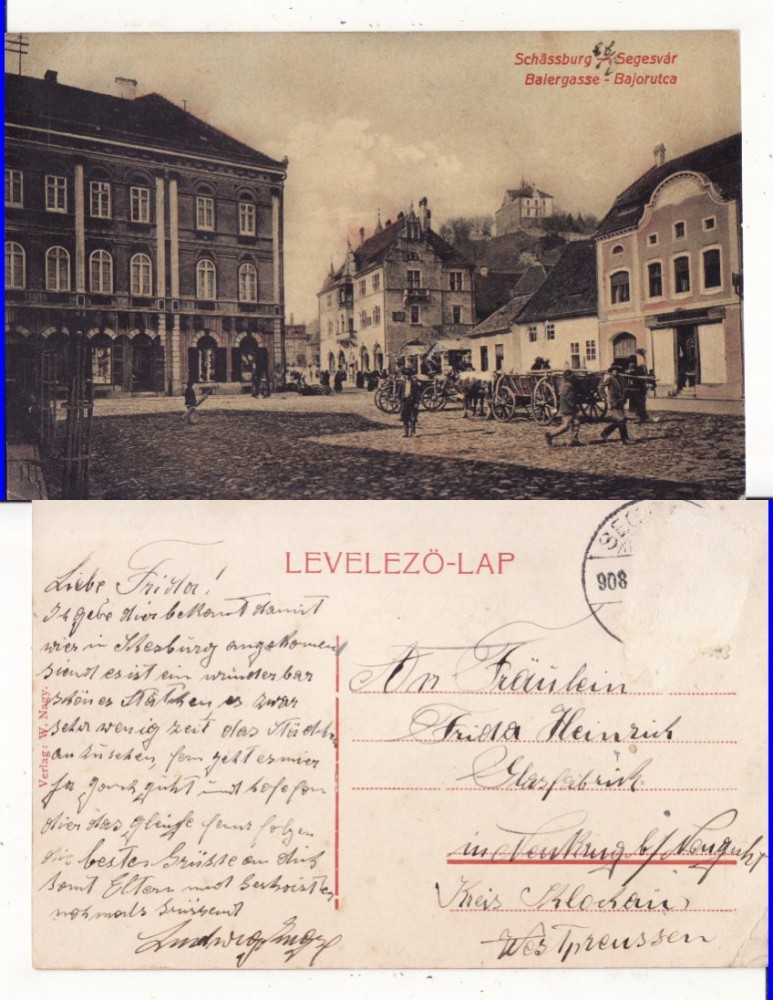 Schässburg - Segesvár
Baiergasse - Bajorutca
LEVELEZÖ-LAP
SEG
908
Verlag: W. Nagy.
Liebe Frida!
Ich gebe dier bekant damit
wier in angekomen
siend es ist ein wunderbar
schönes Stätchen es zwar
sehr wenig zeit das Städtchen
an zuschen, son geht es mier
ja ganz guht und hofe fon
dier das gleiche
die besten Grüsse an dich
samt Eltern und
nohmals Grüssend
Ludwig
An Fräulein
Frida Heinrich
Glasfabrick
in Neukrug b/ Neuguht
Kreis
Westpreussen